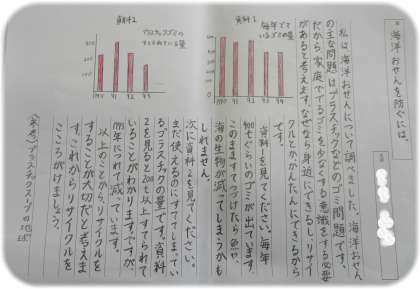 海洋おせんを防ぐには。
私は、海洋おせんについて調べました。海洋おせん
の主な問題はプラスチックなどのゴミ問題です。
だから、家庭でゴミを少なくする意識をする必要
があると考えます。なぜなら身近にできるし、リサイ
クルとかかんたんにできるから
です。
資料1を見てください。毎年
ぐらいのゴミが出ています。
このまますてつづけたら魚や、
海の生物が減ってしまうかも
しれません。
次に資料2を見てください。
まだ使えるのにすててしまってい
るプラスチックの量です。資料
2を見ると200t以上すてられて
いることがわかります。ですが、
年につれて減っています。
以上のことから、リサイクルを
することが大切だと考えま
す。これからリサイクルを
こころがけましょう。
資料1
毎年でて
いるゴミの量
1990
91
92
93
94
資料2
プラスチックゴミの
すてられている量
1990
91
92
93